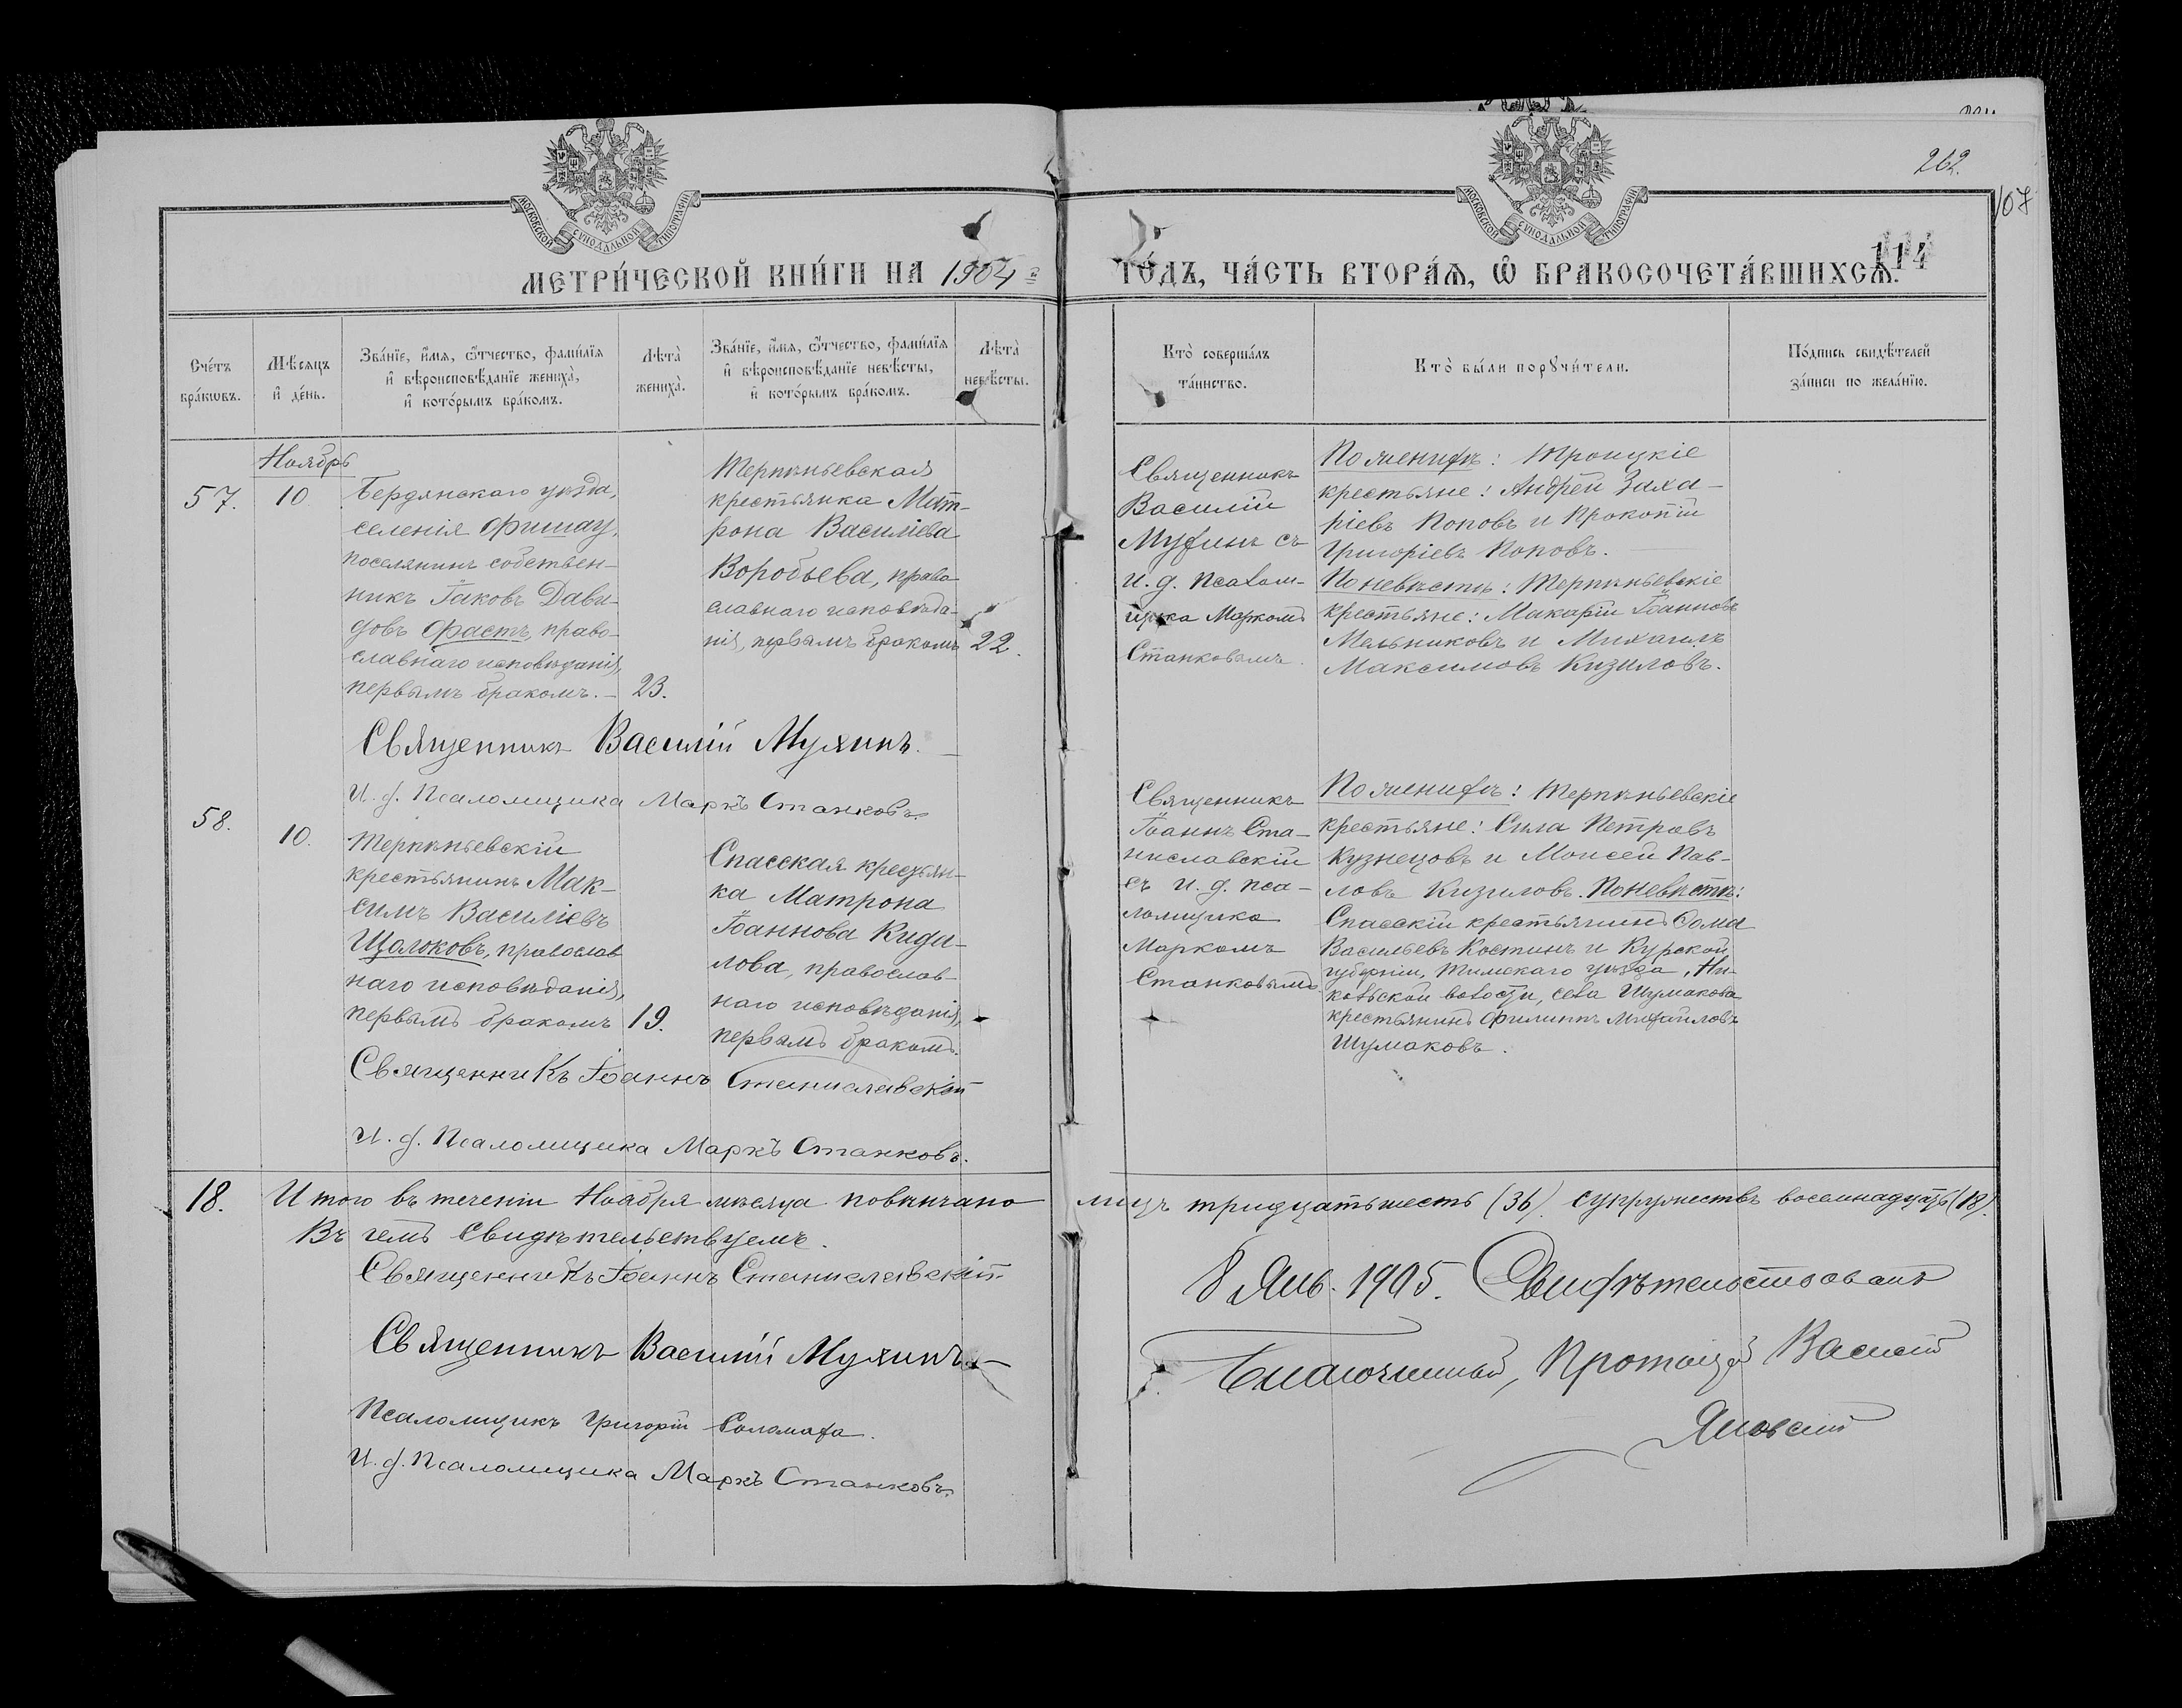 262.
107
МОСКОВСКОЙ СѴНОДАЛЬНОЙ ТИПОГРАФІИ
МОСКОВСКОЙ СѴНОДАЛЬНОЙ ТИПОГРАФІИ
114
МЕТРИ́ЧЕСКОЙ КНИ́ГИ НА 1904 й
ГО́ДЪ, ЧА́СТЬ ВТОРА́Ѧ, Ѡ҆ БРАКОСОЧЕТА́ВШИХСѦ.
Сче́тъ бра́кѡвъ.
Мѣ́сяцъ и҆ де́нь.
Зва́нїе, и҆́мѧ, ѻ҆́тчество, фами́лїѧ и҆ вѣроисповѣ́данїе жениха̀, и҆ кото́рымъ бра́комъ.
Лѣта̀ жениха̀.
Зва́нїе, и҆́мѧ, ѻ҆́тчество, фами́лїѧ и҆ вѣроисповѣ́данїе невѣ́сты, и҆ кото́рымъ бра́комъ.
Лѣта̀ невѣ́сты.
Кто̀ соверша́лъ та́инство.
Кто̀ бы́ли порꙋчи́тели.
По́дпись свидѣ́телей за́писи по жела́нїю.
Ноябрь
57.
10
Бердянскаго уѣзда,
селенія Фишау,
поселянинъ собствен-
никъ Іаковъ Дави-
довъ Фастъ, право-
славнаго исповѣданія,
первымъ бракомъ. –
23.
Терпѣньевская
крестьянка Мат-
рона Василіева
Воробьева, право-
славнаго исповѣда-
нія, первымъ бракомъ
22.
Священникъ
Василій
Мухинъ съ
и. д. псалом-
щика Маркомъ
Станковымъ.
По женихѣ: Троицкіе
крестьяне: Андрей Заха-
ріевъ Поповъ и Прокопій
Григоріевъ Поповъ.
По невѣстѣ: Терпѣньевскіе
крестьяне: Макарій Іоанновъ
Мельниковъ и Михаилъ
Максимовъ Кизиловъ.
Священникъ Василій Мухинъ.
И. д. Псаломщика Маркъ Станковъ.
58.
10.
Терпѣньевскій
крестьянинъ Мак-
симъ Василіевъ
Щолоковъ, православ
наго исповѣданія,
первымъ бракомъ
19.
Спасская крестьян-
ка Матрона
Іоаннова Кида-
лова, православ-
наго исповѣданія,
первымъ бракомъ.
Священникъ
Іоаннъ Ста-
ниславскій
съ и. д. пса-
ломщика
Маркомъ
Станковымъ.
По женихѣ: Терпѣньевскіе
крестьяне: Сила Петровъ
Кузнецовъ и Моисей Пав-
ловъ Кизиловъ. По невѣстѣ:
Спасскій крестьянинъ Ѳома
Васильевъ Костинъ и Курской
губерніи, Тимскаго уѣзда, Ни-
кольской волости, села Шумакова
крестьянинъ Филиппъ Михайловъ
Шумаковъ.
Священникъ Іоаннъ Станиславскій
И. д. Псаломщика Маркъ Станковъ.
18.
Итого въ теченіи Ноября мѣсяца повѣнчано лицъ тридцать шесть (36). супружествъ восемнадцать (18).
Въ чемъ свидѣтельствуемъ.
Священникъ Іоаннъ Станиславскій.
Священникъ Василій Мухинъ
Псаломщикъ Григорій Саломаха.
И. д. Псаломщика Маркъ Станковъ.
8 Янв. 1905. Свидѣтельствовалъ
Благочинный, Протоіерей Василій
Яновскій